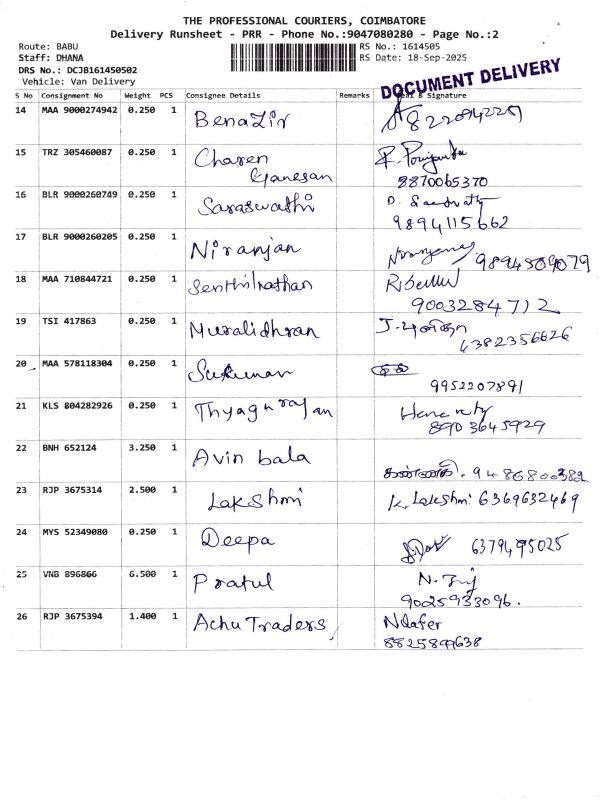 THE PROFESSIONAL COURIERS, COIMBATORE
Delivery Runsheet - PRR - Phone No.:9047080280 - Page No.:2
Route: BABU RS No.: 1614505
Staff: DHANA RS Date: 18-Sep-2025
DRS No.: DCJB161450502
Vehicle: Van Delivery
DOCUMENT DELIVERY
S No Consignment No Weight PCS Consignee Details Remarks & Signature
14 MAA 9000274942 0.250 1 Benazir
15 TRZ 305460087 0.250 1 Charen Ganesan
8870065370
16 BLR 9000260749 0.250 1 Saraswathi
9894115662
17 BLR 9000260205 0.250 1 Niranjan
18 MAA 710844721 0.250 1 Senthilnathan
9003284712
19 TSI 417863 0.250 1 Muralidhran
6382356626
20 MAA 578118304 0.250 1 Sukumar
9952207891
21 KLS 804282926 0.250 1 Thyagarajan
8903645929
22 BNH 652124 3.250 1 Avin bala
23 RJP 3675314 2.500 1 Lakshmi K. Lakshmi 6369632469
24 MYS 52349080 0.250 1 Deepa 6379495025
25 VNB 896866 6.500 1 Pratul
9025933096.
26 RJP 3675394 1.400 1 Achu Traders
8825899638